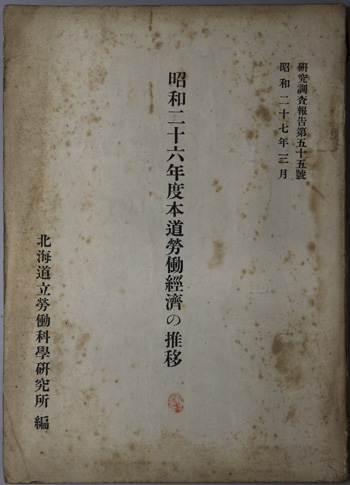 研究調査報告第五十五號
昭和二十七年三月
昭和二十六年度本道勞働經濟の推移
北海道立勞働科學研究所 編